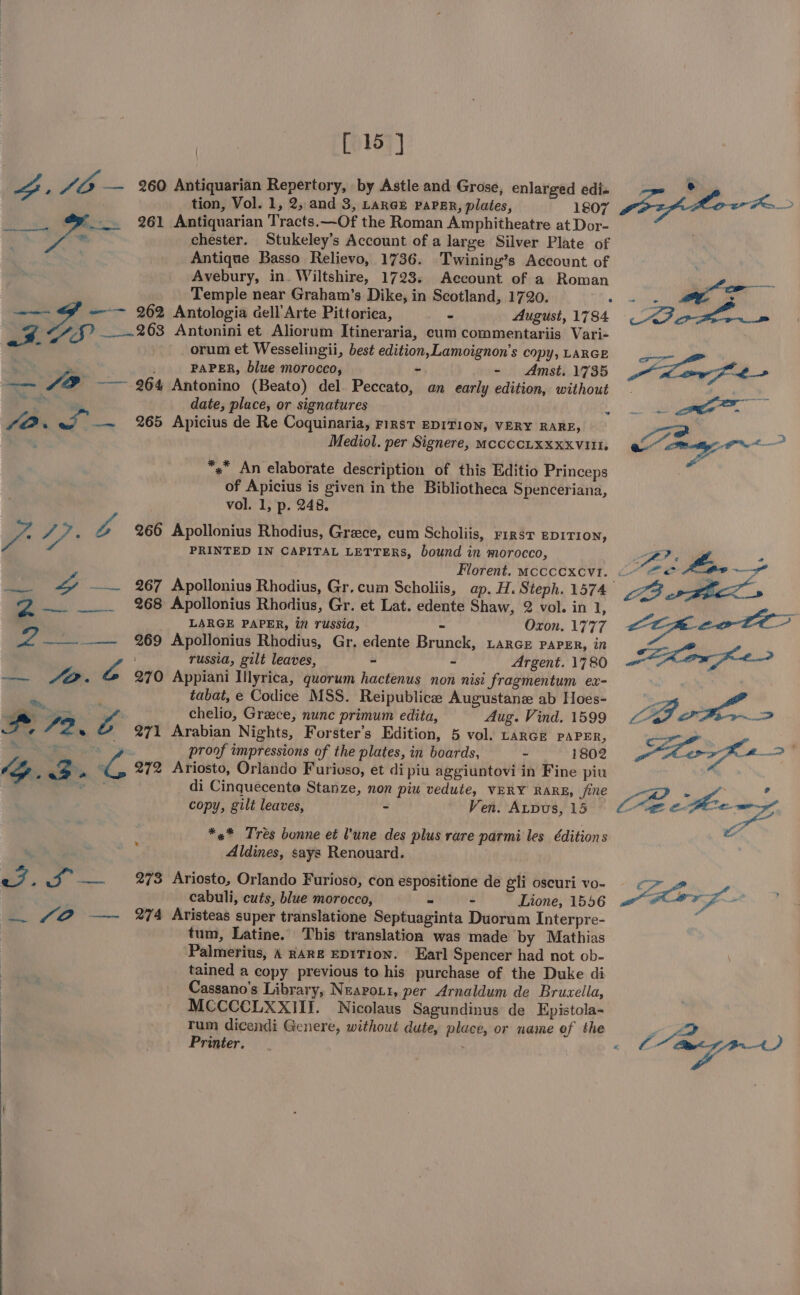 [ 15 ]
4. 16 — 260 Antiquarian Repertory, by Astle and Grose, enlarged edi-
tion, Vol. 1, 2, and 3, LARGE PAPER, plates, 1807
261 Antiquarian Tracts.—Of the Roman Amphitheatre at Dor-
chester. Stukeley's Account of a large Silver Plate of
Antique Basso Relievo, 1736. Twining's Account of
Avebury, in Wiltshire, 1723. Account of a Roman
Temple near Graham's Dike, in Scotland, 1720.
— 9 — 262 Antologia dell'Arte Pittorica, - August, 1784
263 Antonini et Aliorum Itineraria, cum commentariis Vari-
orum et Wesselingii, best edition, Lamoignon's copy, LARGE
PAPER, blue morocco, - - Amst. 1735
— 10 — 264 Antonino (Beato) del Peccato, an early edition, without
date, place, or signatures
10. 5 — 265 Apicius de Re Coquinaria, FIRST EDITION, VERY RARE,
Mediol. per Signere, MCCCCLXXXXVIII.
*** An elaborate description of this Editio Princeps
of Apicius is given in the Bibliotheca Spenceriana,
vol. 1, p. 248.
7. 17. 6 266 Apollonius Rhodius, Græce, cum Scholiis, FIRST EDITION,
PRINTED IN CAPITAL LETTERS, bound in morocco,
Florent. MCCCCXCVI.
— 4 — 267 Apollonius Rhodius, Gr. cum Scholiis, ap. H. Steph. 1574
2 — — 268 Apollonius Rhodius, Gr. et Lat. edente Shaw, 2 vol. in 1,
LARGE PAPER, in russia, - Oxon. 1777
2 — — 269 Apollonius Rhodius, Gr. edente Brunck, LARGE PAPER, in
russia, gilt leaves, - - Argent. 1780
— 10. 6 270 Appiani Illyrica, quorum hactenus non nisi fragmentum ex-
tabat, e Codice MSS. Reipublicæ Augustanæ ab Hoes-
chelio, Græce, nunc primum edita, Aug. Vind. 1599
8. 12. 6 271 Arabian Nights, Forster's Edition, 5 vol. LARGE PAPER,
proof impressions of the plates, in boards, - 1802
272 Ariosto, Orlando Furioso, et di piu aggiuntovi in Fine piu
di Cinquecento Stanze, non piu vedute, VERY RARE, fine
copy, gilt leaves, - Ven. ALDUS, 15
*** Très bonne et l'une des plus rare parmi les éditions
Aldines, says Renouard.
3. 5 — 273 Ariosto, Orlando Furioso, con espositione de gli oscuri vo-
cabuli, cuts, blue morocco, - - Lione, 1556
— 10 — 274 Aristeas super translatione Septuaginta Duorum Interpre-
tum, Latine. This translation was made by Mathias
Palmerius, A RARE EDITION. Earl Spencer had not ob-
tained a copy previous to his purchase of the Duke di
Cassano's Library, NEAPOLI, per Arnaldum de Bruxella,
MCCCCLXXIII. Nicolaus Sagundinus de Epistola-
rum dicendi Genere, without date, place, or name of the
Printer.